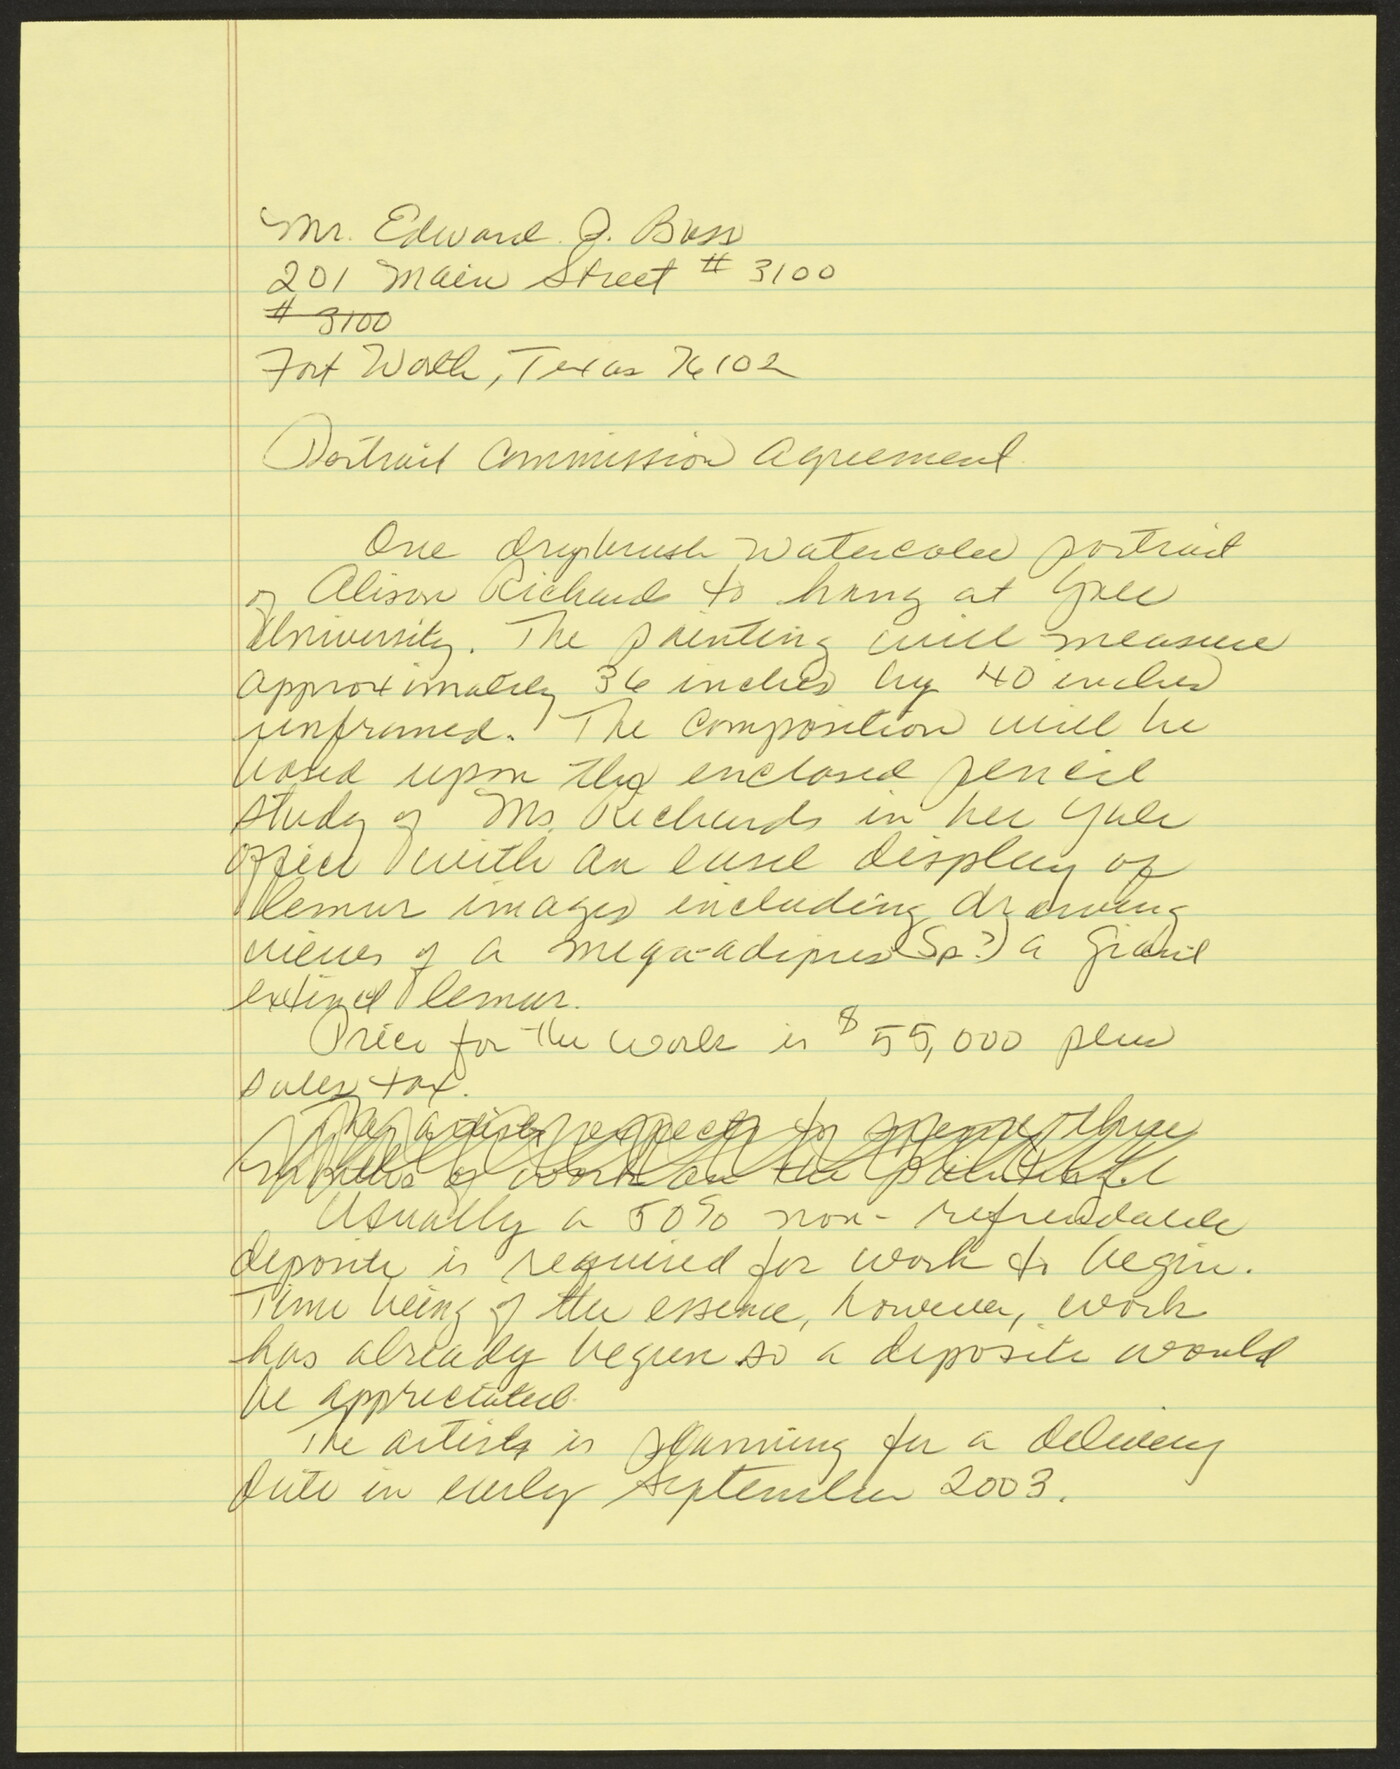 Mr. Edward J. Bass
201 Main Street # 3100
# 3100
Fort Worth, Texas 76102
Portrait Commission Agreement
One drybrush watercolor portrait
of Alison Richard to hang at Yale
University. The painting will measure
approximately 36 inches by 40 inches
unframed. The composition will be
based upon the enclosed pencil
study of Ms. Richards in her Yale
office with an easel display of
lemur images including drawing
views of a mega-adipus (Sp?) a giant
extinct lemur.
Price for the work is $55,000 plus
sales tax.
The artist expects to spend three
months of work on the painting.
Usually a 50% non-refundable
deposite is required for work to begin.
Time being of the essence, however, work
has already begun so a deposite would
be appreciated.
The artist is planning for a delivery
date in early September 2003.